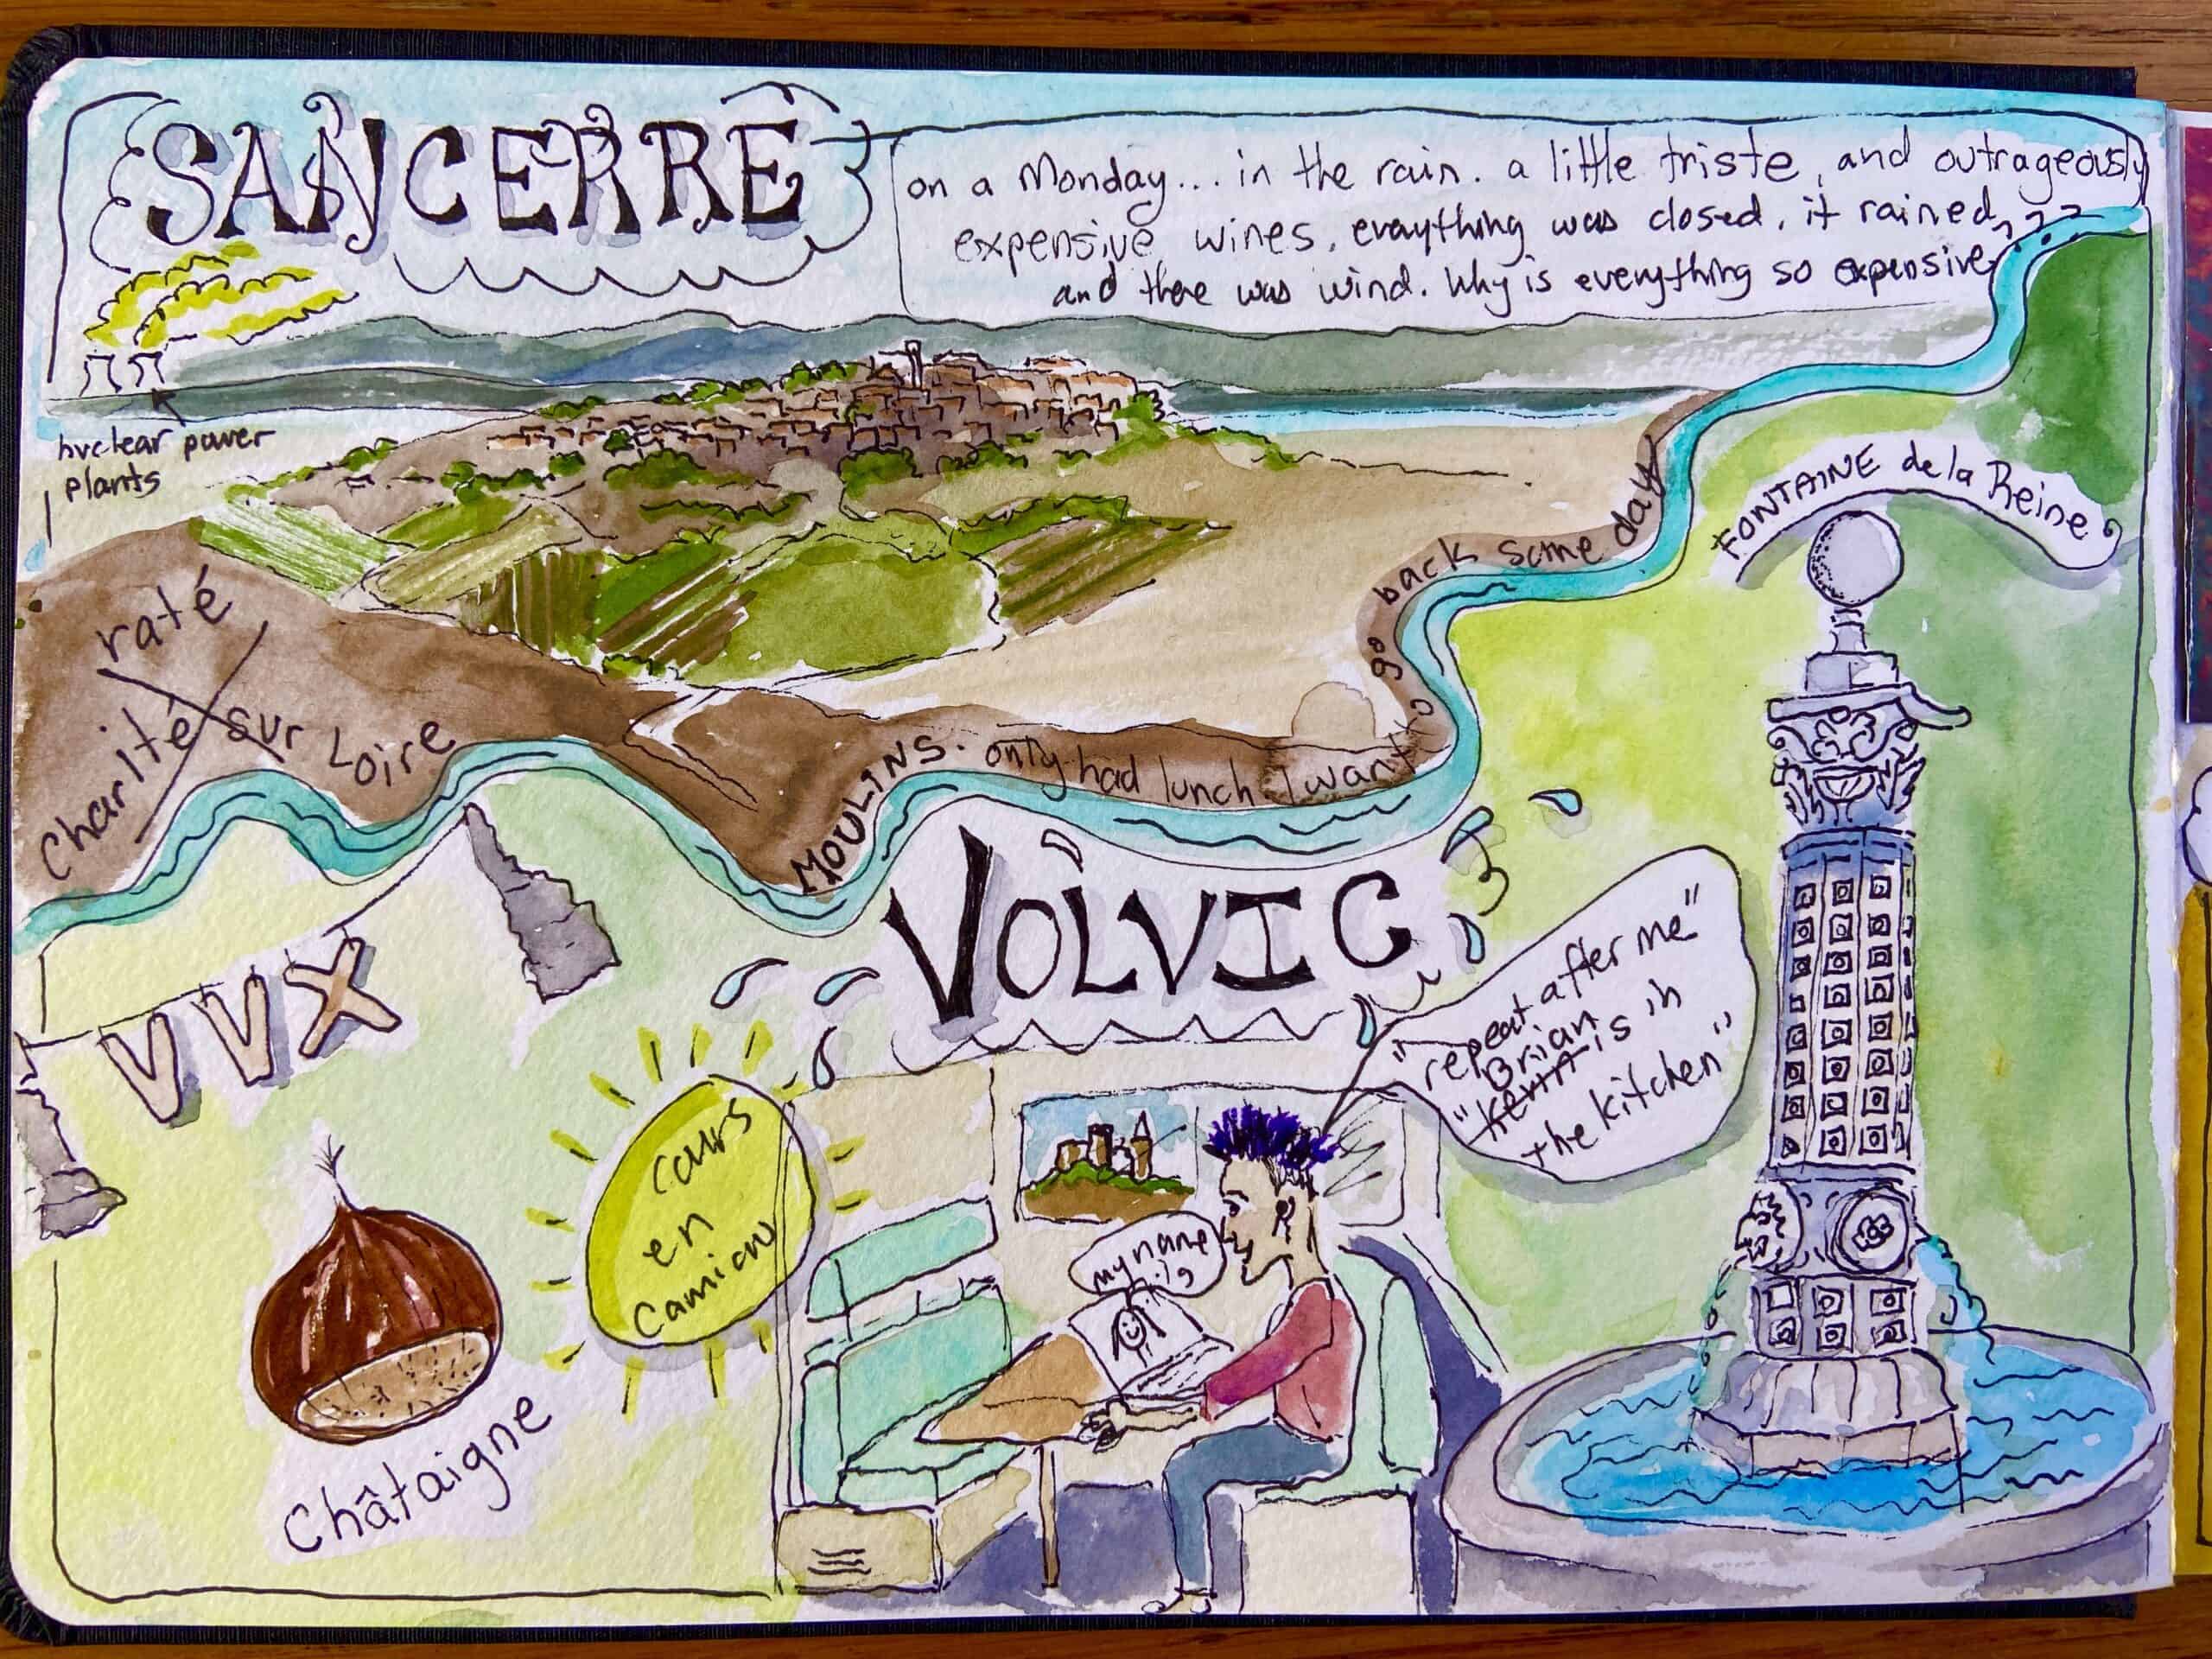 SANCERRE
on a Monday... in the rain. a little triste, and outrageously
expensive wines. everything was closed, it rained,
and there was wind. Why is everything so expensive
nuclear power
plants
raté
Charité sur Loire
MOULINS. only had lunch I want to go back some day
FONTAINE de la Reine
VOLVIC
VVX
"repeat after me"
Brian
"Kevin is in
the kitchen"
cours
en
Camion
my name
is
Châtaigne